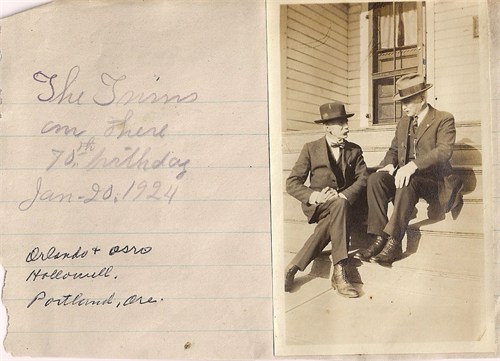 The Twins
on there
70th birthday
Jan-20, 1924
Orlando + Osro
Hollowell.
Portland, Ore.